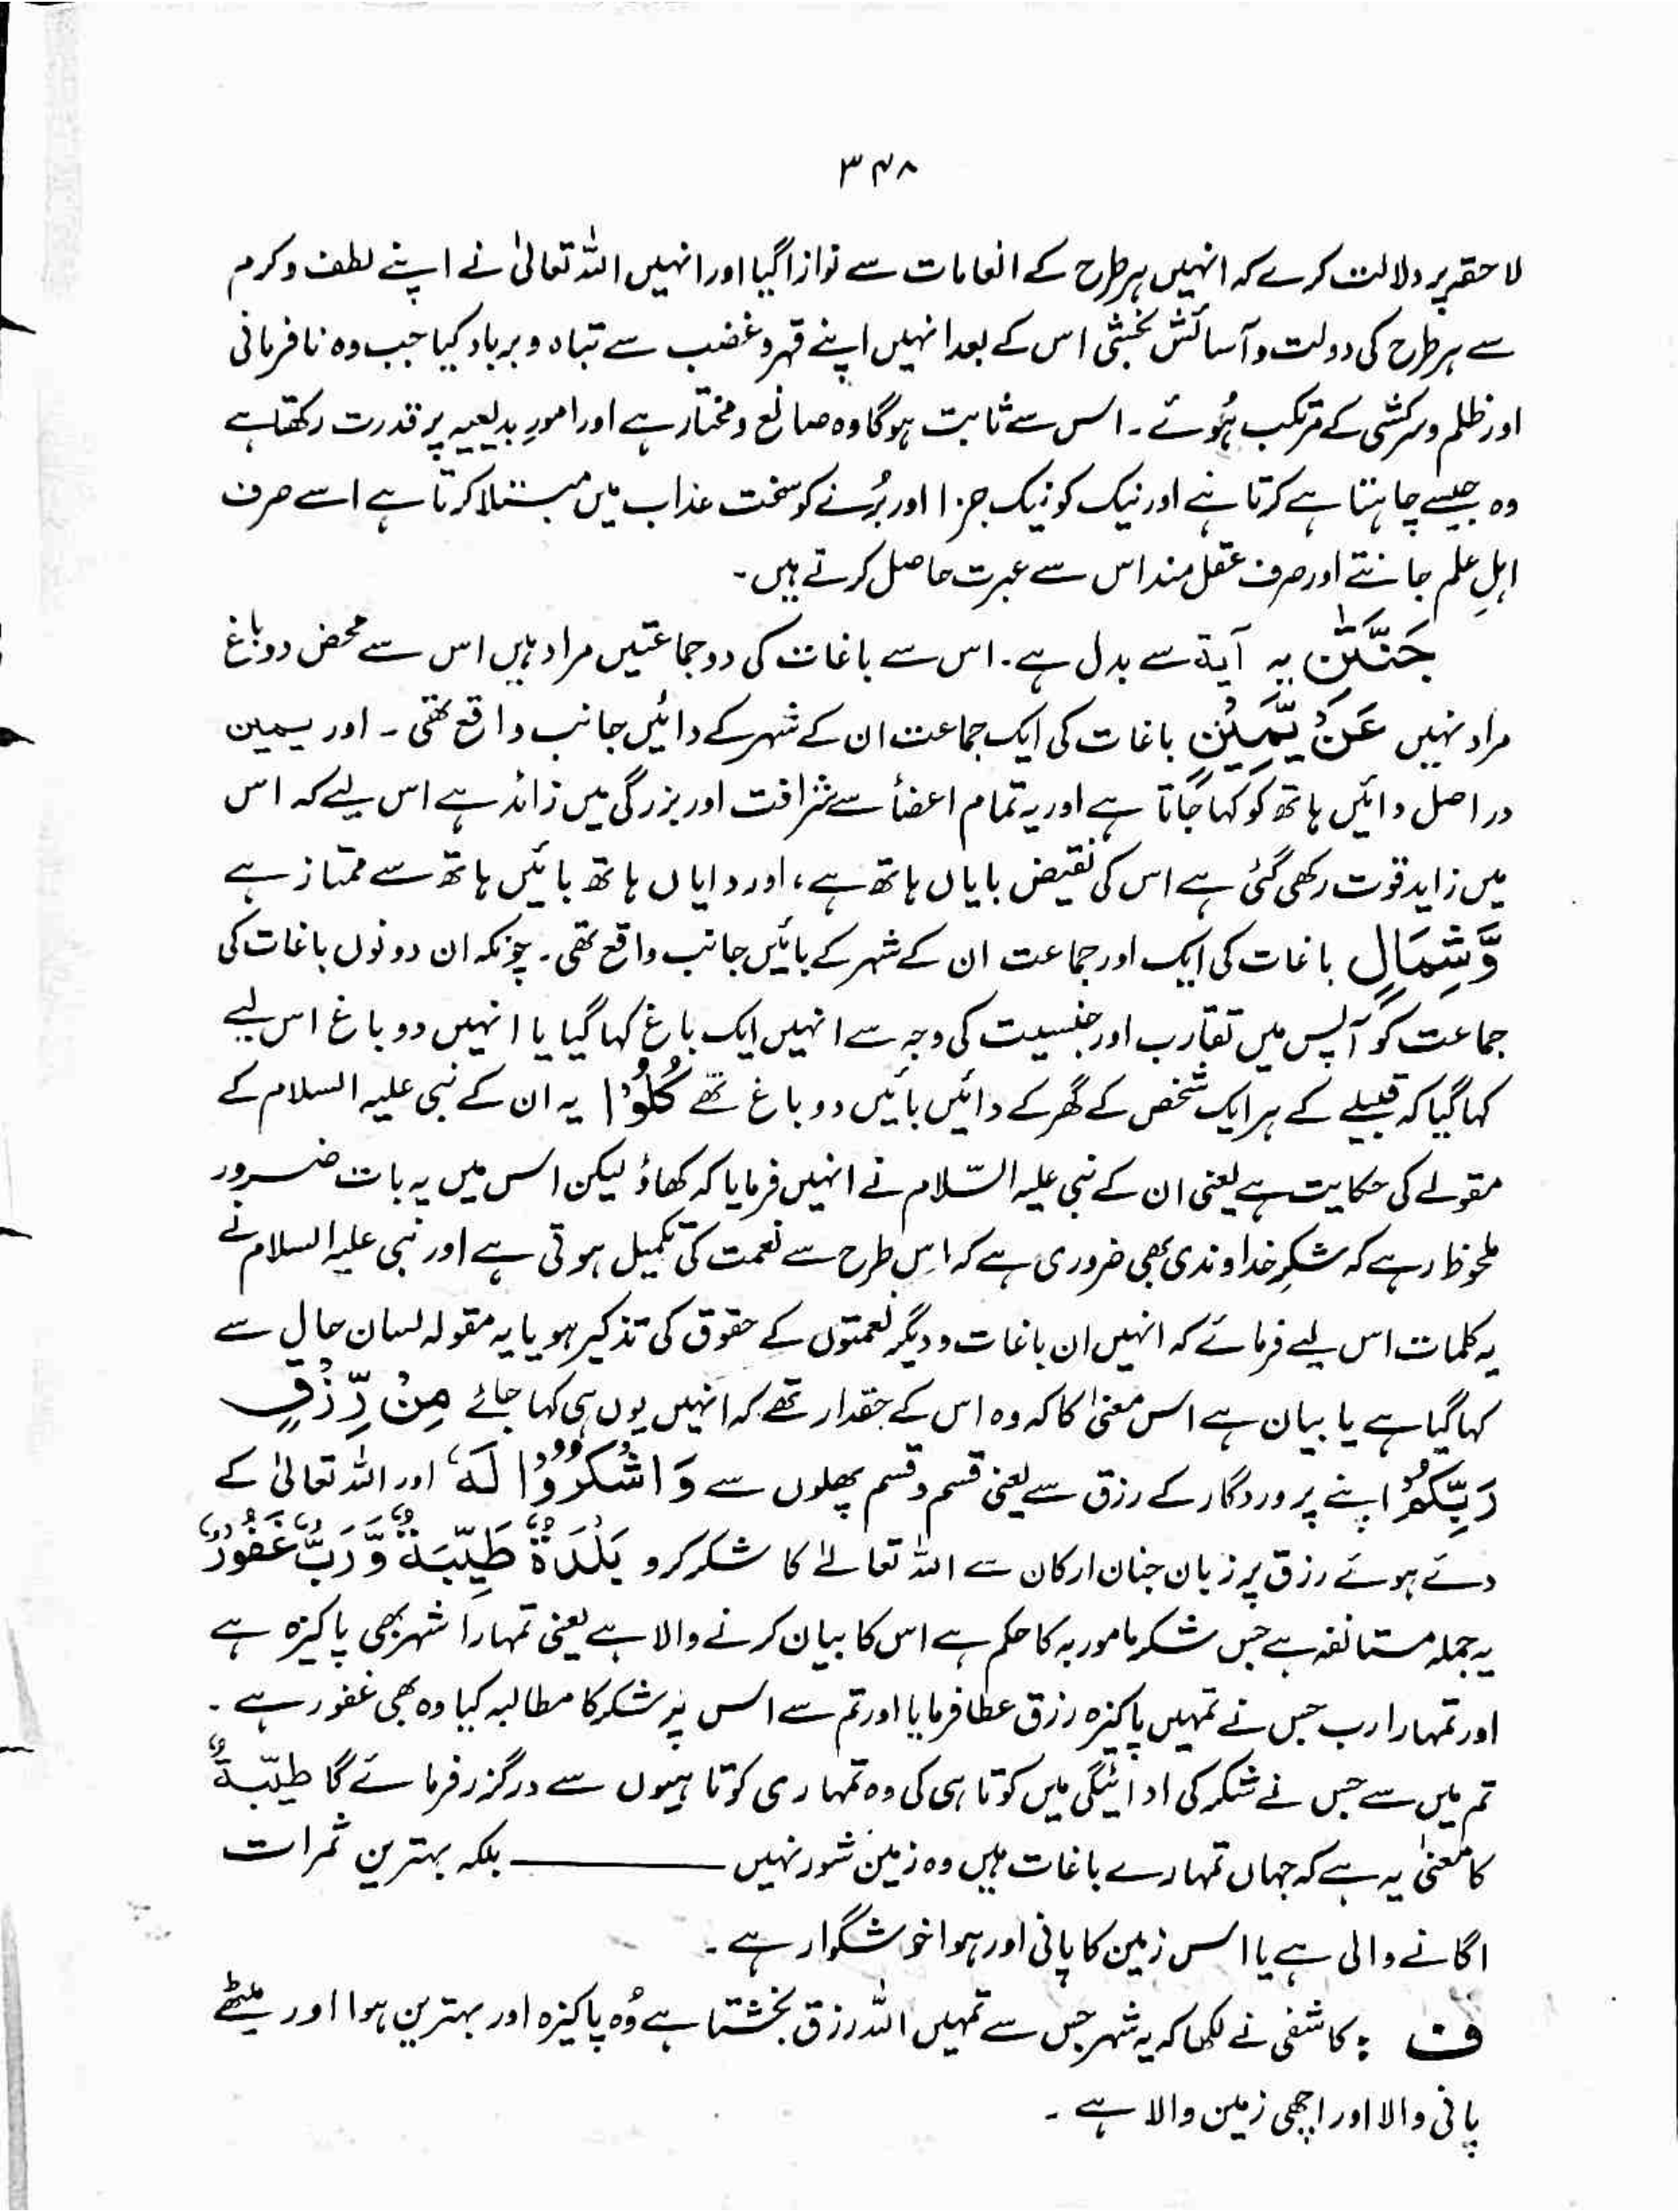 ۳۴۸
لاحقہ پر دلالت کرے کہ انہیں ہر طرح کے انعامات سے نوازا گیا اور انہیں اللہ تعالیٰ نے اپنے لطف و کرم
سے ہر طرح کی دولت و آسائش بخشی اس کے بعد انہیں اپنے قہر و غضب سے تباہ و برباد کیا جب وہ نافرمانی
اور ظلم و سرکشی کے مرتکب ہُوئے ۔ اس سے ثابت ہوگا وہ صانع و مختار ہے اور امورِ بدیعیہ پر قدرت رکھتا ہے
وہ جیسے چاہتا ہے کرتا ہے اور نیک کو نیک جزا اور بُرے کو سخت عذاب میں مبتلا کرتا ہے اسے صرف
اہلِ علم جانتے اور صرف عقل مند اس سے عبرت حاصل کرتے ہیں ۔
جَنَّتٰنِ یہ آیۃ سے بدل ہے ۔ اس سے باغات کی دو جماعتیں مراد ہیں اس سے محض دو باغ
مراد نہیں عَنْ یَّمِیْنٍ باغات کی ایک جماعت ان کے شہر کے دائیں جانب واقع تھی ۔ اور یمین
در اصل دائیں ہاتھ کو کہا جاتا ہے اور یہ تمام اعضأ سے شرافت اور بزرگی میں زائد ہے اس لیے کہ اس
میں زاید قوت رکھی گئی ہے اس کی نقیض بایاں ہاتھ ہے، اور دایاں ہاتھ بائیں ہاتھ سے ممتاز ہے
وَّشِمَالٍ باغات کی ایک اور جماعت ان کے شہر کے بائیں جانب واقع تھی ۔ چونکہ ان دونوں باغات کی
جماعت کو آپس میں تقارب اور جنسیت کی وجہ سے انہیں ایک باغ کہا گیا یا انہیں دو باغ اس لیے
کہا گیا کہ قبیلے کے ہر ایک شخص کے گھر کے دائیں بائیں دو باغ تھے کُلُوْا یہ ان کے نبی علیہ السلام کے
مقولے کی حکایت ہے یعنی ان کے نبی علیہ السّلام نے انہیں فرمایا کہ کھاؤ لیکن اس میں یہ بات ضرور
ملحوظ رہے کہ شکرِ خداوندی بھی ضروری ہے کہ اس طرح سے نعمت کی تکمیل ہوتی ہے اور نبی علیہ السلام نے
یہ کلمات اس لیے فرمائے کہ انہیں ان باغات و دیگر نعمتوں کے حقوق کی تذکیر ہو یا یہ مقولہ لسان حال سے
کہا گیا ہے یا بیان ہے اس معنیٰ کا کہ وہ اس کے حقدار تھے کہ انہیں یوں ہی کہا جائے مِنْ رِّزْقِ
رَبِّکُمْ اپنے پروردگار کے رزق سے یعنی قسم و قسم پھلوں سے وَاشْکُرُوْا لَہٗ اور اللہ تعالیٰ کے
دئے ہوئے رزق پر زبان جنان ارکان سے اللہ تعالےٰ کا شکر کرو بَلْدَۃٌ طَیِّبَۃٌ وَّرَبٌّ غَفُوْرٌ
یہ جملہ مستانفہ ہے جس شکر مامور بہ کا حکم ہے اس کا بیان کرنے والا ہے یعنی تمہارا شہر بھی پاکیزہ ہے
اور تمہارا رب جس نے تمہیں پاکیزہ رزق عطا فرمایا اور تم سے اس پر شکر کا مطالبہ کیا وہ بھی غفور ہے ۔
تم میں سے جس نے شکر کی ادائیگی میں کوتاہی کی وہ تمہاری کوتاہیوں سے درگزر فرمائے گا طیبّۃٌ
کا معنیٰ یہ ہے کہ جہاں تمہارے باغات ہیں وہ زمین شور نہیں ــــــــــ بلکہ بہترین ثمرات
اگانے والی ہے یا اس زمین کا پانی اور ہوا خوشگوار ہے ۔
ف : کاشفی نے لکھا کہ یہ شہر جس سے تمہیں اللہ رزق بخشتا ہے وُہ پاکیزہ اور بہترین ہوا اور میٹھے
پانی والا اور اچھی زمین والا ہے ۔